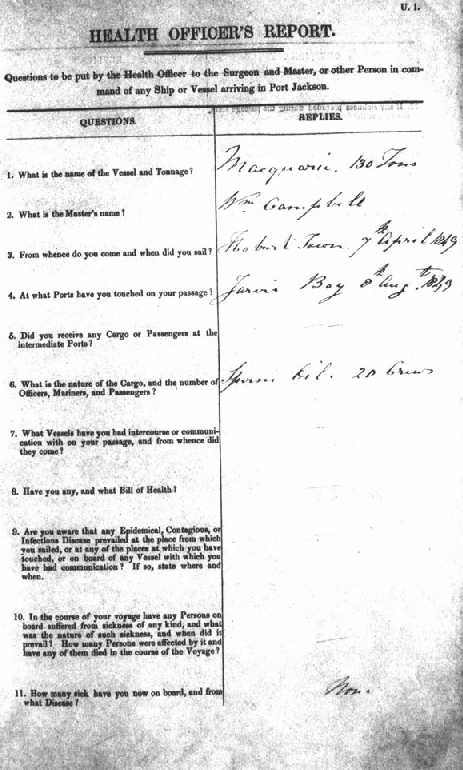 U. 1.
HEALTH OFFICER'S REPORT.
Questions to be put by the Health Officer to the Surgeon and Master, or other Person in com-
mand of any Ship or Vessel arriving in Port Jackson.
QUESTIONS.
REPLIES.
1. What is the name of the Vessel and Tonnage?
Macquarie. 130 Tons
2. What is the Master's name?
Wm Campbell
3. From whence do you come and when did you sail?
Hobart Town 7th April 1849
4. At what Ports have you touched on your passage?
Jarvis Bay 8th Augt. 1849
5. Did you receive any Cargo or Passengers at the
intermediate Ports?
6. What is the nature of the Cargo, and the number of
Officers, Mariners, and Passengers?
Sperm Oil. 20 Crew
7. What Vessels have you had intercourse or communi-
cation with on your passage, and from whence did
they come?
8. Have you any, and what Bill of Health?
9. Are you aware that any Epidemical, Contagious, or
Infectious Disease prevailed at the place from which
you sailed, or at any of the places at which you have
touched, or on board of any Vessel with which you
have had communication? If so, state where and
when.
10. In the course of your voyage have any Persons on
board suffered from sickness of any kind, and what
was the nature of such sickness, and when did it
prevail? How many Persons were affected by it and
have any of them died in the course of the Voyage?
11. How many sick have you now on board, and from
what Disease?
Non.